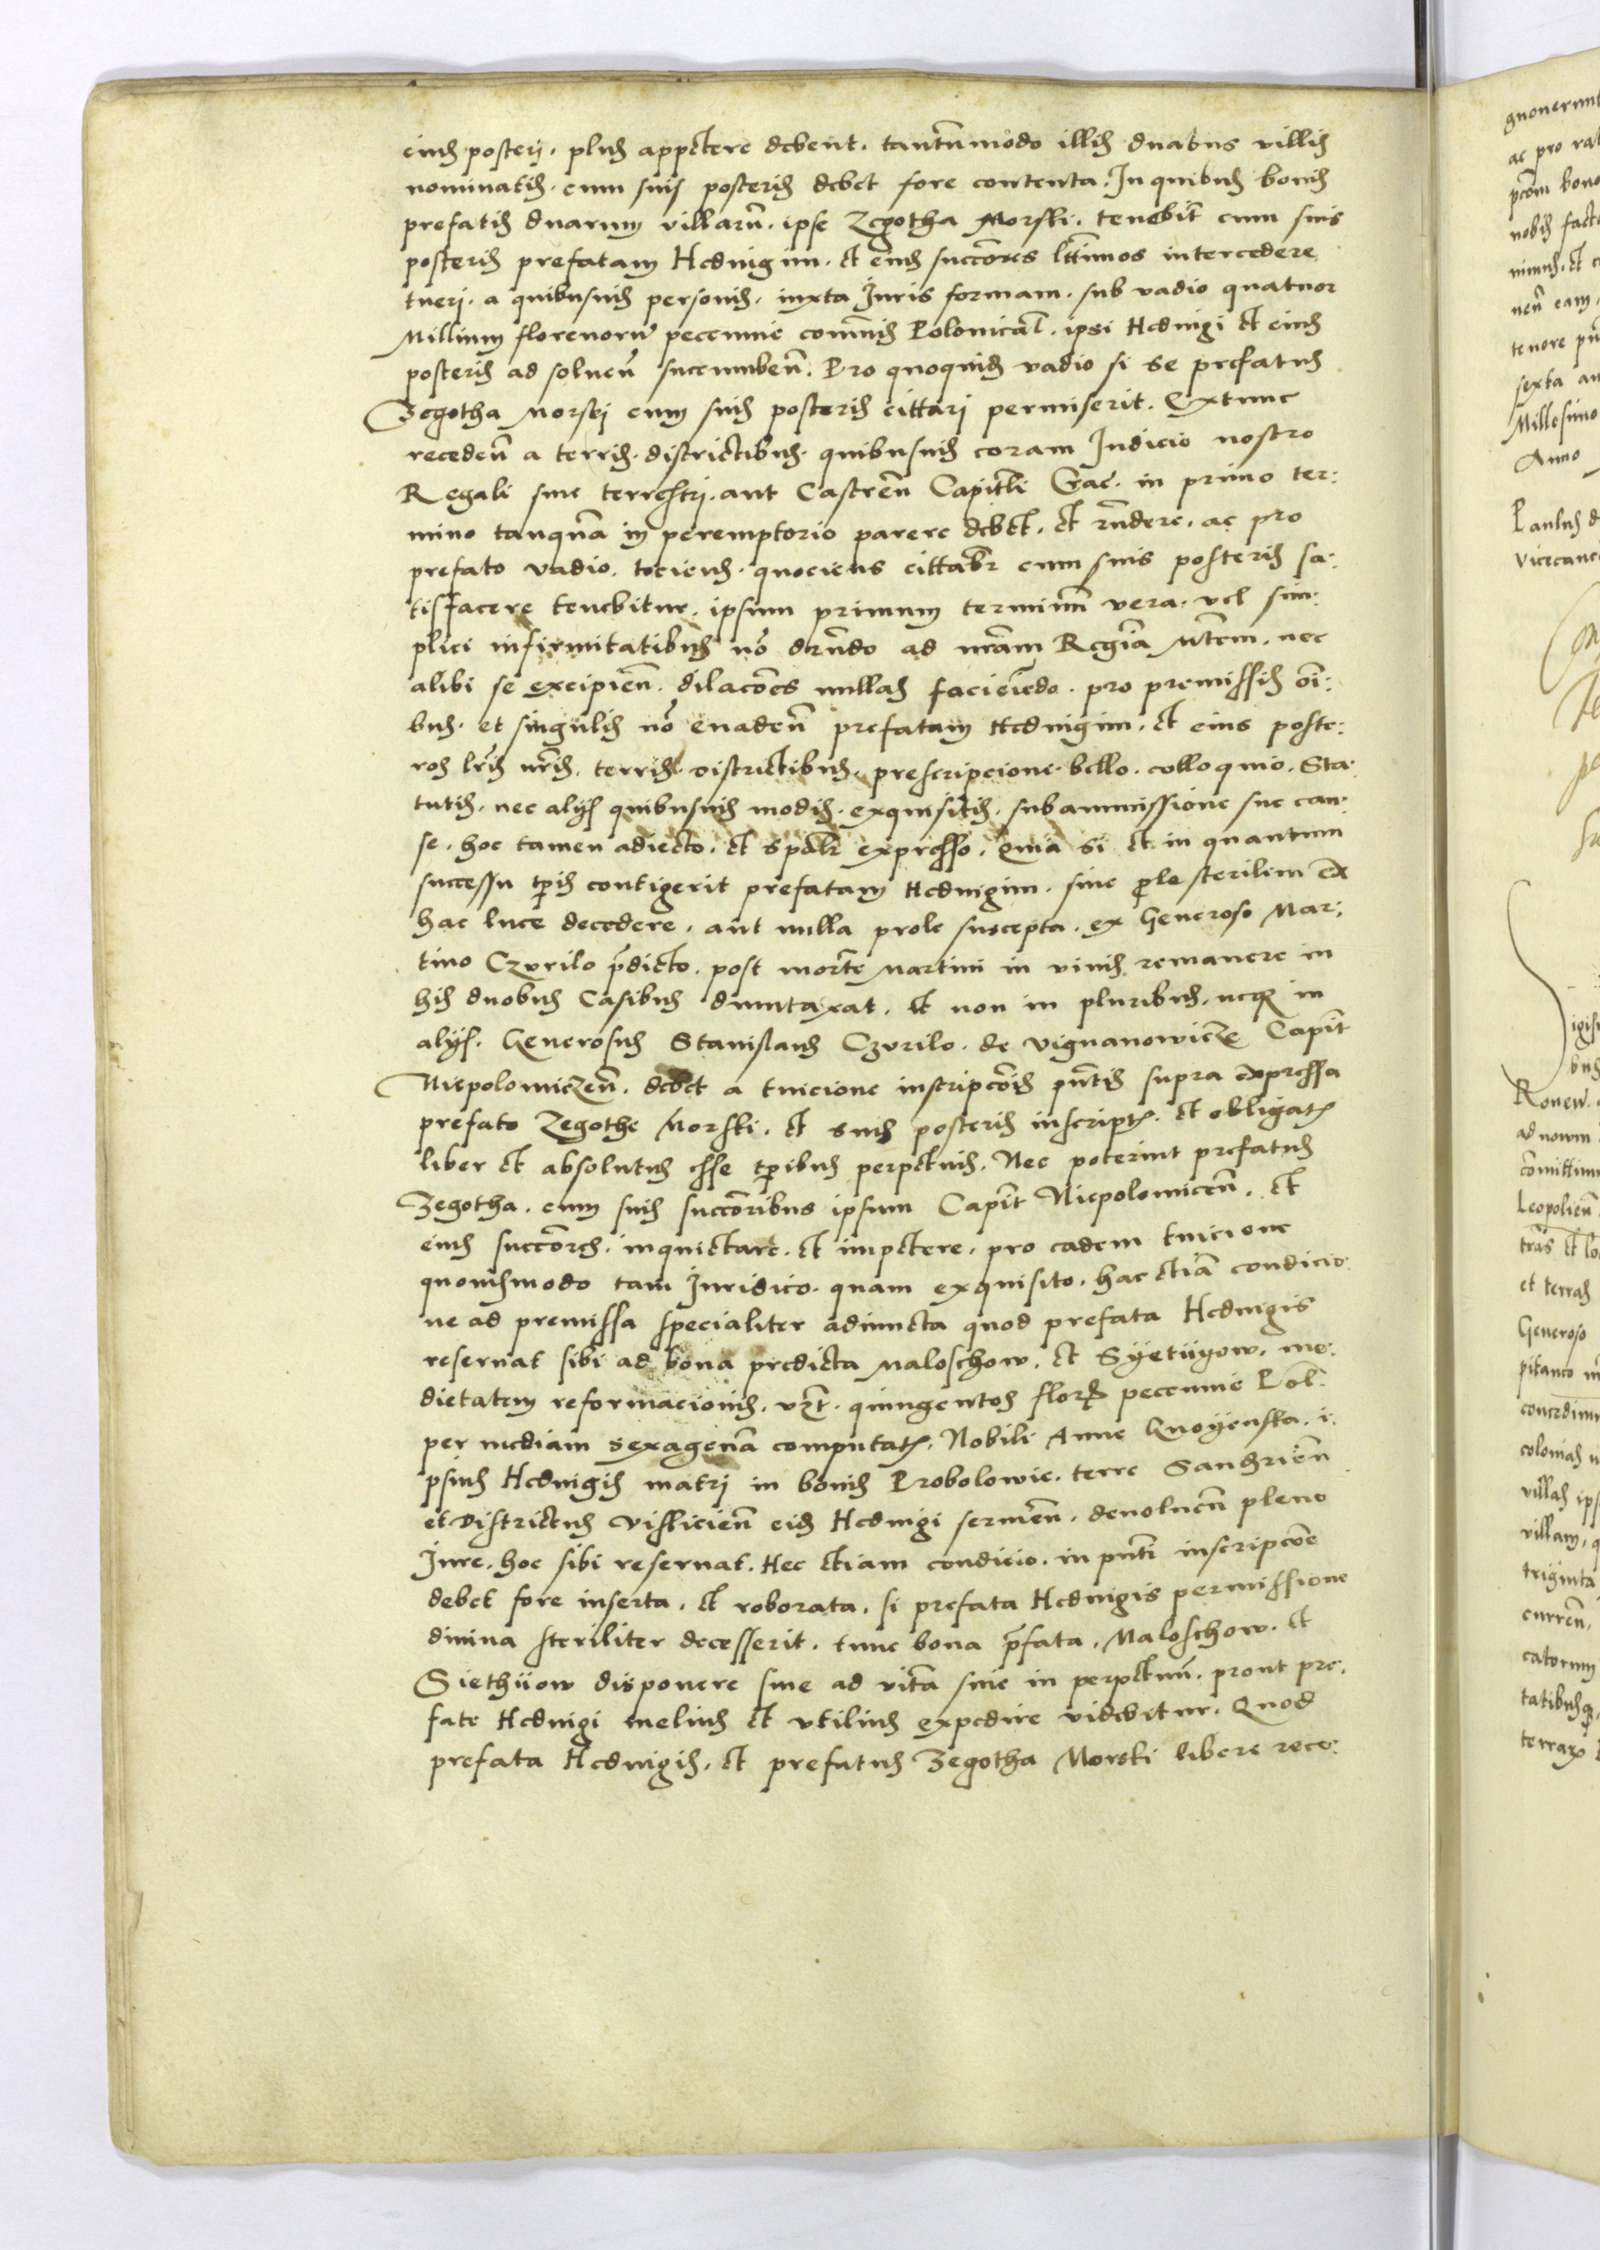 eius posteri, plus appetere debent, tantummodo illis duabus villis
nominatis, cum suis posteris debet fore contenta. In quibus bonis
prefatis duarum villarũ, ipse Zegotha Morski, tenebit̃ cum suis
posteris prefatam Hedvigim, et eius succõres lttimos intercedere
tueri, a quibusuis personis, iuxta Juris formam, sub vadio quatuor
Millium florenorũ pecunnie com̃nis Polonical̃, ipsi Hedvigi et eius
posteris ad soluen̄ succumben̄. Pro quoquidẽ vadio si se prefatus
Zegotha Morski cum suis posteris cittari permiserit. Extunc
receden̄ a terris, districtibus, quibusuis coram Judicio nostro
Regali siue terrestri, aut Castren̄ Capit̃li Crac̃, in primo ter:
mino tanquã in peremptorio parere debet, et rñdere, ac pro
prefato vadio, tociens, quociens cittabr̃ cum suis posteris sa:
tisfacere tenebitur, ipsum primum terminũ vera, vel sim:
plici infirmitatibus nõ dif̃ndo ad nrãm Regiã Mtem, nec
alibi se excipien̄, dilacõnes nullas faciendo, pro premissis oĩ:
bus, et singulis nõ euaden̄ prefatam Hedvigim, et eius poste:
ros lr̃is nr̃is, terris, districtibus, prescripcione, bello, colloquio, Sta:
tutis, nec alijs quibusuis modis, exquisitis, sub ammissione sue cau:
se, hoc tamen adiecto, et sp̃alr̃ expresso, Quia si et in quantum
successu tp̃is contigerit prefatam Hedvigim, sine prole sterilem ex
hac luce decedere, aut nulla prole suscepta, ex Generoso Mar:
tino Czurilo p̃dicto, post mortẽ Martini in viuis remanere in
his duobus Casibus dumtaxat, et non in pluribus, neqз in
alijs, Generosus Stanislaus Czurilo, de Vignanowicze Capit̃
Niepolomiczen̄, debet a tuicione inscripcõis pñtis supra expressa
prefato Zegothe Morski, et suis posteris inscript̃, et obligat̃
liber et absolutus esse tp̃ibus perpetuis. Nec poterint prefatus
Zegotha, cum suis succõribus ipsum Capit̃ Niepolomicen̄, et
eius succõres, inquietare, et impetere, pro eadem tuicione
quouismodo tam Juridico, quam exquisito, hac etiã condicio:
ne ad premissa specialiter adiuncta quod prefata Hedvigis
reseruat sibi ad bona predicta Maloschow, et Syetüyow, me:
dietatem reformacionis, vz̃t, quingentos florз pecunnie Pol̃:
per mediam sexagenã computat̃, Nobili Anne Gnoyenska, i:
psius Hedvigis matri in bonis Probolowic, terre Sandzrien̄
et districtus Visliciẽn eidẽ Hedvigi seruien̄, deuoluen̄ pleno
Jure, hoc sibi reseruat. Hec etiam condicio, in pñti inscripcõe
debet fore inserta, et roborata, si prefata Hedvigis permissione
diuina steriliter decesserit, tunc bona p̃fata, Maloschow, et
Siethüow disponere siue ad vitã siue in perpetuũ, prout pre:
fate Hedvigi melius et vtilius expedire videbitur. Quod
prefata Hedvigis, et prefatus Zegotha Morski libere reco: